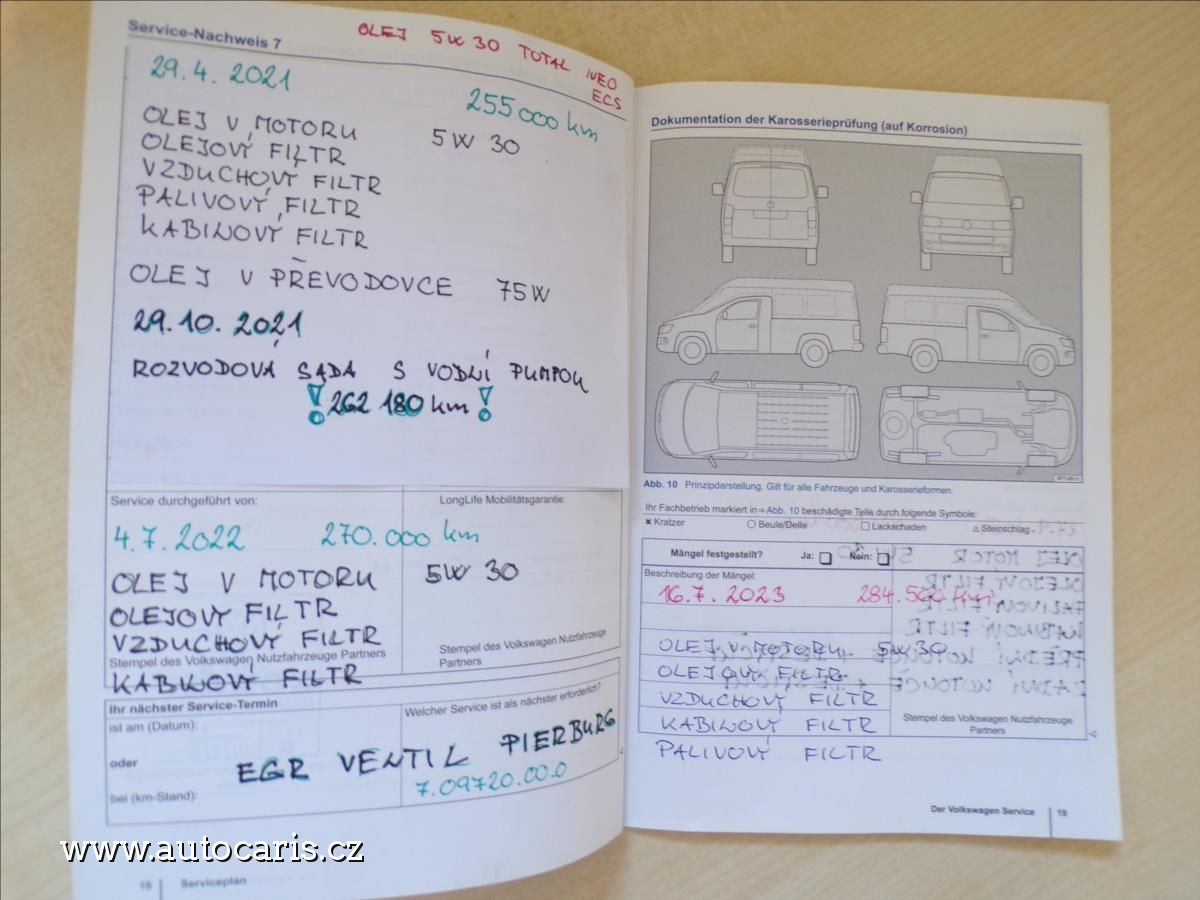 Service-Nachweis 7
OLEJ 5W 30 TOTAL INEO
ECS
29.4.2021
255 000 km
OLEJ V MOTORU 5W 30
OLEJOVÝ FILTR
VZDUCHOVÝ FILTR
PALIVOVÝ FILTR
KABINOVÝ FILTR
OLEJ V PŘEVODOVCE 75W
29.10.2021
ROZVODOVÁ SADA S VODNÍ PUMPOU
! 262 180 km !
Service durchgeführt von:
LongLife Mobilitätsgarantie:
4.7.2022 270.000 km
OLEJ V MOTORU 5W 30
OLEJOVÝ FILTR
VZDUCHOVÝ FILTR
Stempel des Volkswagen Nutzfahrzeuge Partners
Stempel des Volkswagen Nutzfahrzeuge
Partners
KABINOVÝ FILTR
Ihr nächster Service-Termin
Welcher Service ist als nächster erforderlich?
ist am (Datum):
oder
EGR VENTIL PIERBURG
7.09720.00.0
bei (km-Stand):
18 Serviceplan
Dokumentation der Karosserieprüfung (auf Korrosion)
Abb. 10 Prinzipdarstellung. Gilt für alle Fahrzeuge und Karosserieformen.
Ihr Fachbetrieb markiert in ⇒ Abb. 10 beschädigte Teile durch folgende Symbole:
✖ Kratzer ○ Beule/Delle □ Lackschaden △ Steinschlag
Mängel festgestellt? Ja: Nein:
Beschreibung der Mängel:
16.7.2023 284.500 km
OLEJ V MOTORU 5W 30
OLEJOVÝ FILTR
VZDUCHOVÝ FILTR
KABINOVÝ FILTR
PALIVOVÝ FILTR
Stempel des Volkswagen Nutzfahrzeuge
Partners
Der Volkswagen Service 19
www.autocaris.cz